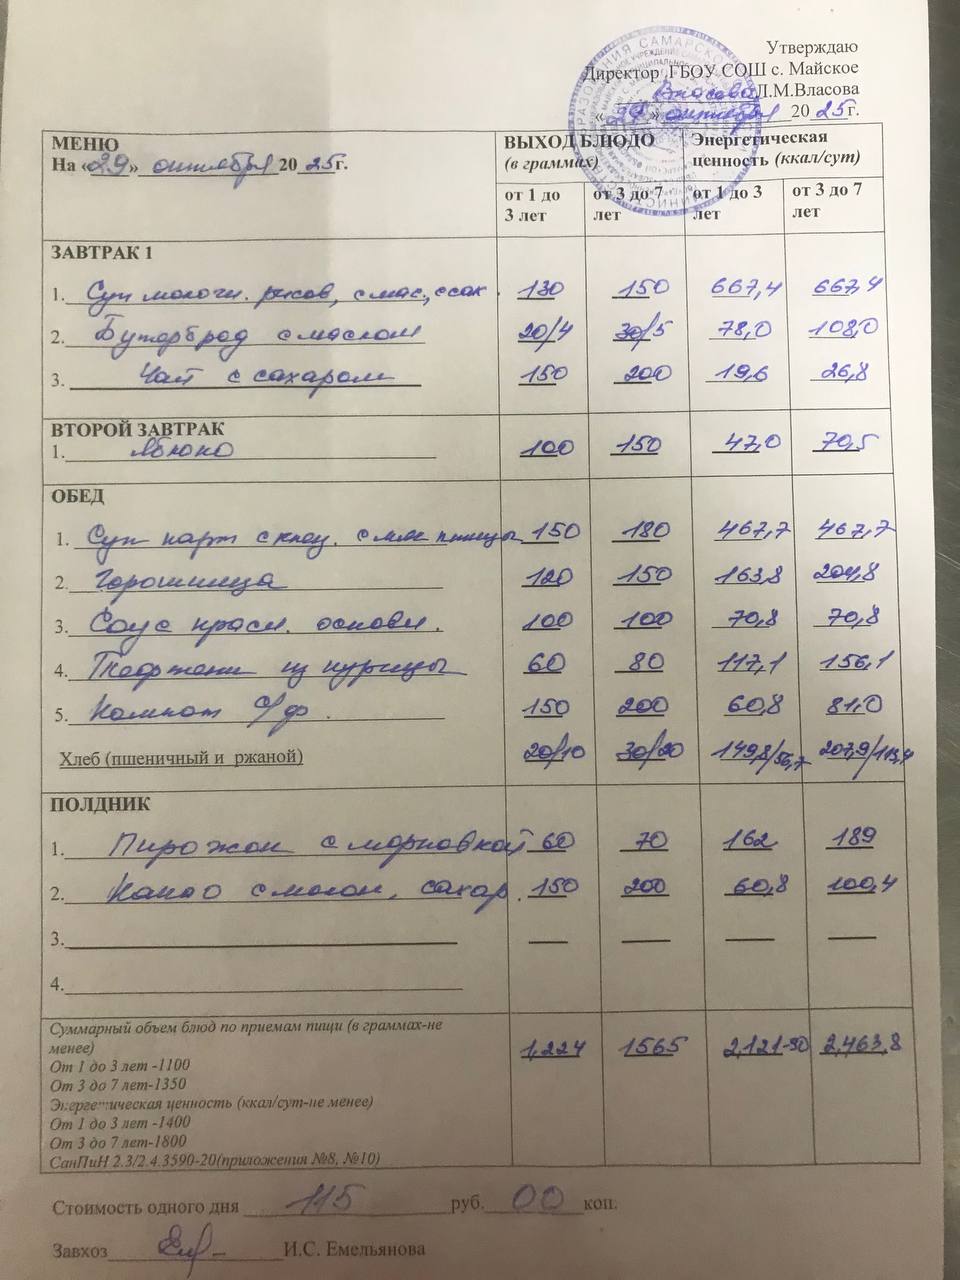 Утверждаю
Директор ГБОУ СОШ с. Майское
Власова Л.М.Власова
«29» октября 20 25г.
МЕНЮ
На «29» октября 20 25г.
ВЫХОД БЛЮДО
(в граммах)
Энергетическая
ценность (ккал/сут)
от 1 до 3 лет от 3 до 7 лет от 1 до 3 лет от 3 до 7 лет
ЗАВТРАК 1
1. Суп молочн. рисов, с мас., с сах. 130 150 667,4 667,4
2. Бутерброд с маслом 20/4 30/5 78,0 108,0
3. Чай с сахаром 150 200 19,6 26,8
ВТОРОЙ ЗАВТРАК
1. Яблоко 100 150 47,0 70,5
ОБЕД
1. Суп карт с клец. с мяс птицы 150 180 467,7 467,7
2. Горошница 120 150 163,8 204,8
3. Соус красн. основн. 100 100 70,8 70,8
4. из курицы 60 80 117,1 156,1
5. Компот с/ф. 150 200 60,8 81,0
Хлеб (пшеничный и ржаной) 20/10 30/20 149,8/56,7 207,9/113,4
ПОЛДНИК
1. Пирожок с морковкой 60 70 162 189
2. Какао с молок, сахар. 150 200 60,8 100,4
3.
4.
Суммарный объем блюд по приемам пищи (в граммах-не
менее)
От 1 до 3 лет -1100
От 3 до 7 лет-1350
Энергетическая ценность (ккал/сут-не менее)
От 1 до 3 лет -1400
От 3 до 7 лет-1800
СанПиН 2.3/2.4.3590-20(приложения №8, №10)
1,224 1565 2,121-90 2,463,8
Стоимость одного дня 115 руб. 00 коп.
Завхоз И.С. Емельянова